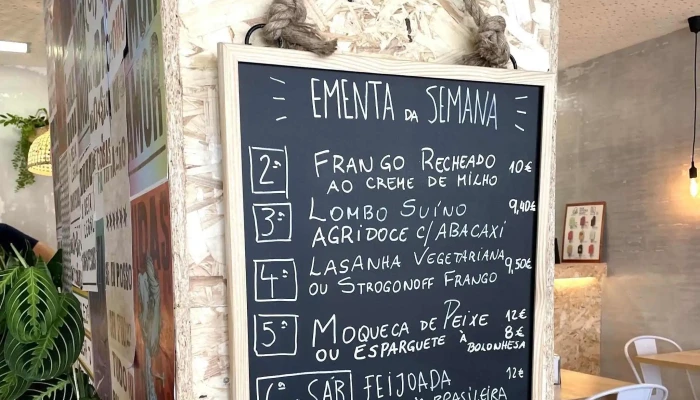 EMENTA DA SEMANA
2ª FRANGO RECHEADO 10€
AO CREME DE MILHO
3ª LOMBO SUÍNO 9,40€
AGRIDOCE C/ ABACAXI
4ª LASANHA VEGETARIANA 9,50€
OU STROGONOFF FRANGO
5ª MOQUECA DE PEIXE 12€
OU ESPARGUETE À BOLONHESA 8€
6ª SÁB FEIJOADA 12€
BRASILEIRA